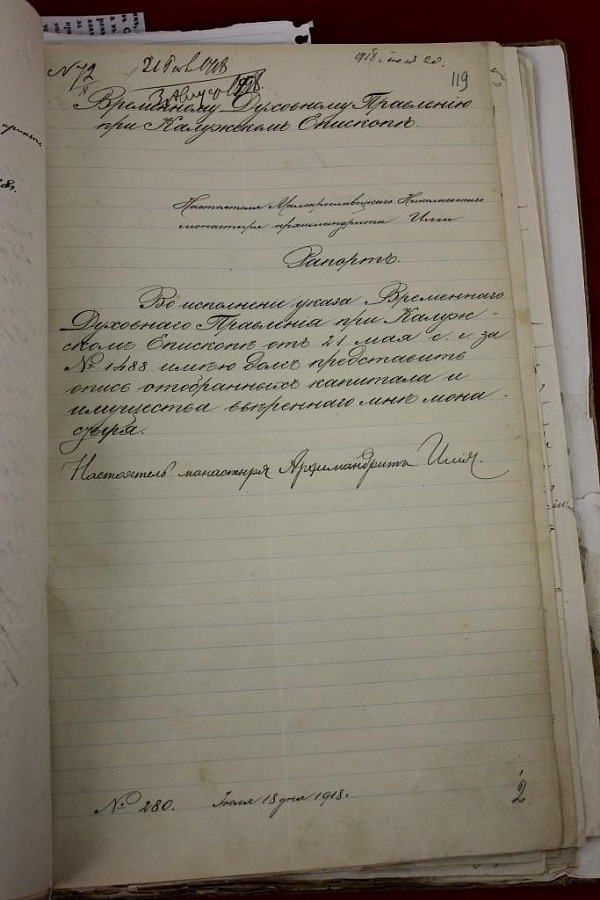 N 72/8
1918. июля 20.
119
3 Август 1918.
Временному Духовному Правлению
при Калужскомъ Епископѣ.
Настоятеля Малоярославецкаго Николаевскаго
монастыря архимандрита Иліи
Рапортъ.
Во исполнени указа Временнаго
Духовнаго Правленія при Калуж-
скомъ Епископѣ отъ 21 мая с. г. за
№ 1488 имѣю долгъ представить
опись отобранныхъ капитала и
имущества ввѣреннаго мнѣ мона-
стыря.
Настоятель монастыря Архимандритъ Илія.
№ 280. Іюля 18 дня 1918.
2